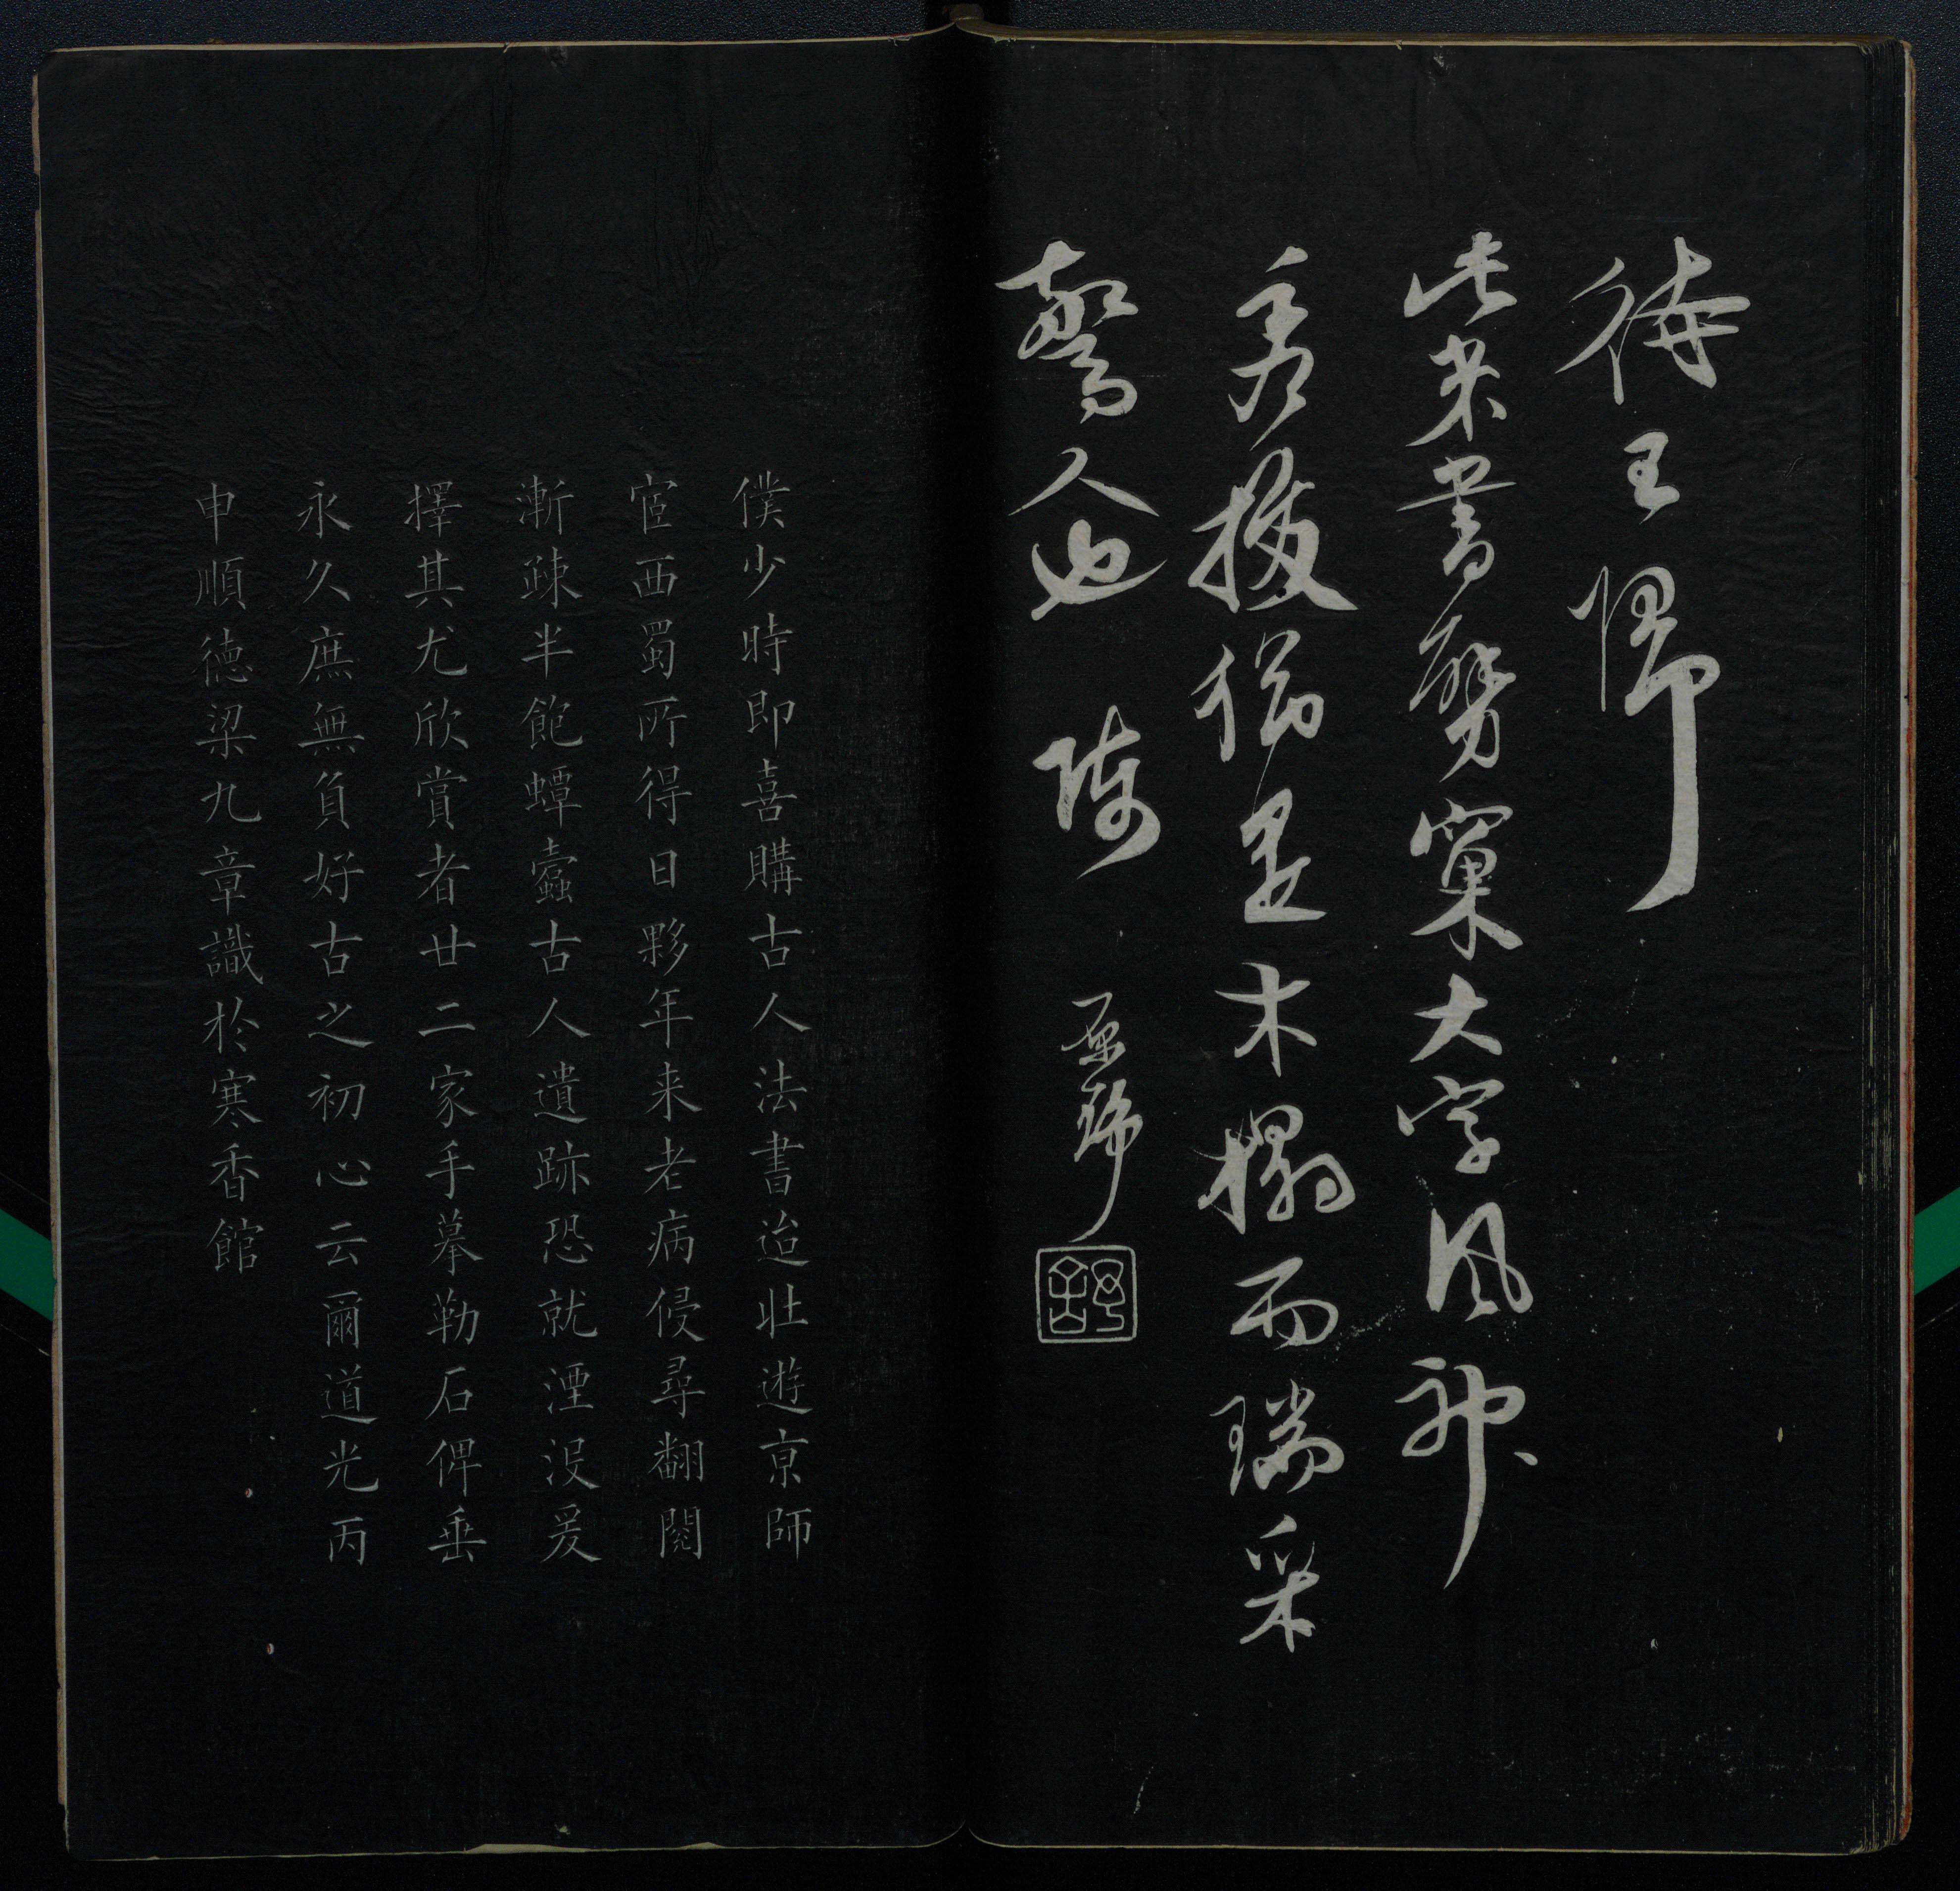 待王歸
生來書擘窠大字風神
秀拔猶是木榻而瑞采
驚人也陳
僕少時即喜購古人法書迨壯遊京師
宦西蜀所得日夥年来老病侵尋翻閱
漸踈半飽蟫蠹古人遺跡恐就湮沒爰
擇其尤欣賞者廿二家手摹勒石俾垂
永久庶無負好古之初心云爾道光丙
申順德梁九章識於寒香館